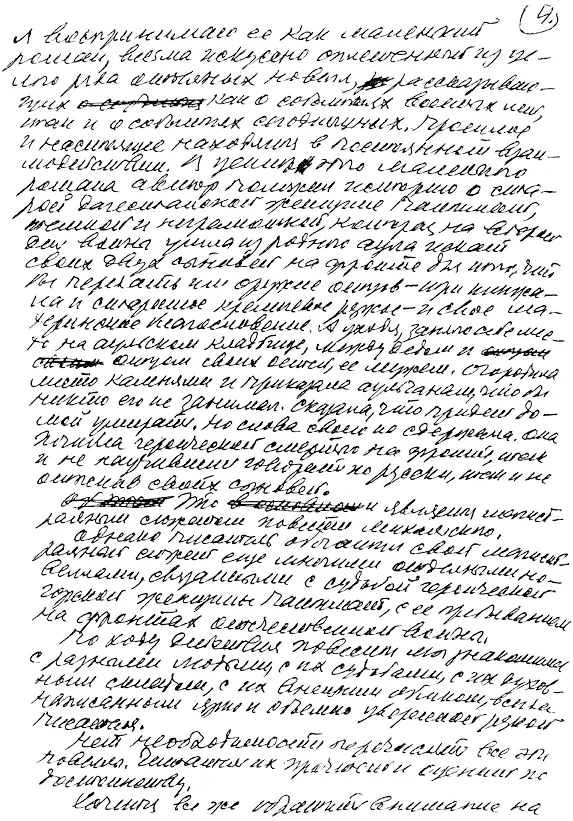 4.
Я воспринимаю ее как маленький
роман, весьма искусно сплетенный из це-
лого ряда отдельных новелл, рассказываю-
щих как о событиях военных лет,
так и о событиях сегодняшних. Прошлое
и настоящее находятся в постоянном взаи-
модействии. В центр этого маленького
романа автор положил историю о ста-
рой дагестанской женщине Чаптмат,
темной и неграмотной, которая на второй
день войны ушла из родного аула искать
своих двух сыновей на фронте для того, что
бы передать им оружие отцов - три кинжа-
ла и старинное кремневое ружье - и свое ма-
теринское благословение. А уходя, заняла себе мес-
то на аульском кладбище, между дедом и
отцом своих детей, ее мужем. Огородила
место камнями и приказала аульчанам, что бы
никто его не занимал. Сказала, что придет до-
мой умирать. Но слова своего не сдержала. Она
погибла героической смертью на фронте, так
и не научившись говорить по русски, так и не
отыскав своих сыновей.
Это и является магист-
ральным сюжетом повести
Однако писатель обогатил свой магист-
ральный сюжет еще многими отдельными но-
веллами, связанными с судьбой героической
горской женщины Чаптмат, с ее пребыванием
на фронтах отечественной войны.
По ходу действия повести мы знакомимся
с разными людьми, с их судьбами, с их духов-
ным складом, с их внешним обликом,
написанными ярко и объемно уверенной рукой
писателя.
Нет необходимости перечислять все эти
новеллы. Читатели их прочтут и оценят по
достоинству.
Хочется все же обратить внимание на